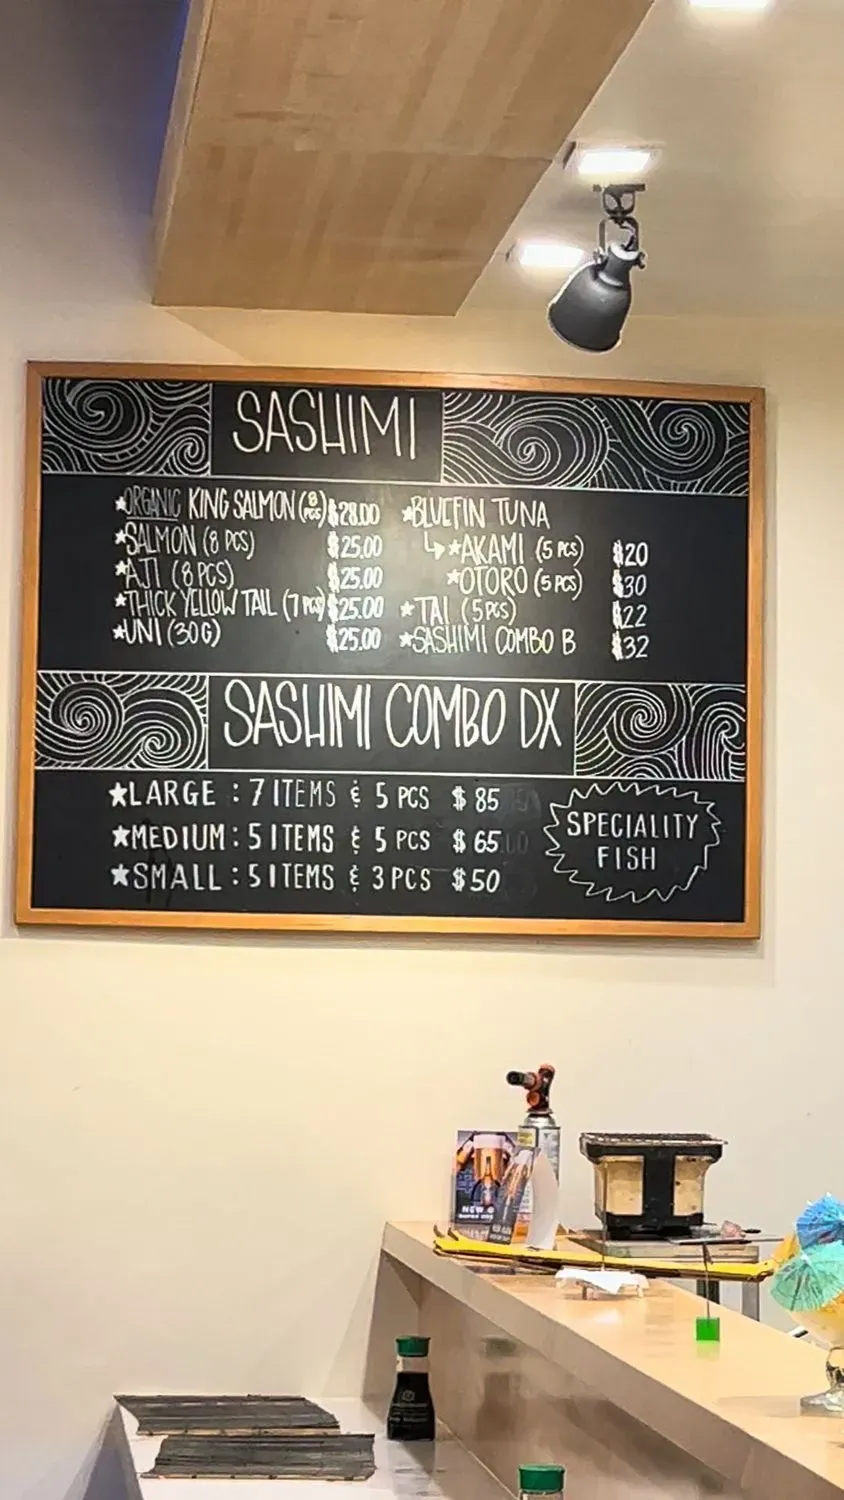 SASHIMI
★ORGANIC KING SALMON (8 PCS) $28.00
★SALMON (8 PCS) $25.00
★AJI (8 PCS) $25.00
★THICK YELLOW TAIL (7 PCS) $25.00
★UNI (30G) $25.00
★BLUEFIN TUNA
↳★AKAMI (5 PCS) $20
★OTORO (5 PCS) $30
★TAI (5 PCS) $22
★SASHIMI COMBO B $32
SASHIMI COMBO DX
★LARGE : 7 ITEMS & 5 PCS $85
★MEDIUM : 5 ITEMS & 5 PCS $65
★SMALL : 5 ITEMS & 3 PCS $50
SPECIALITY
FISH
NEW